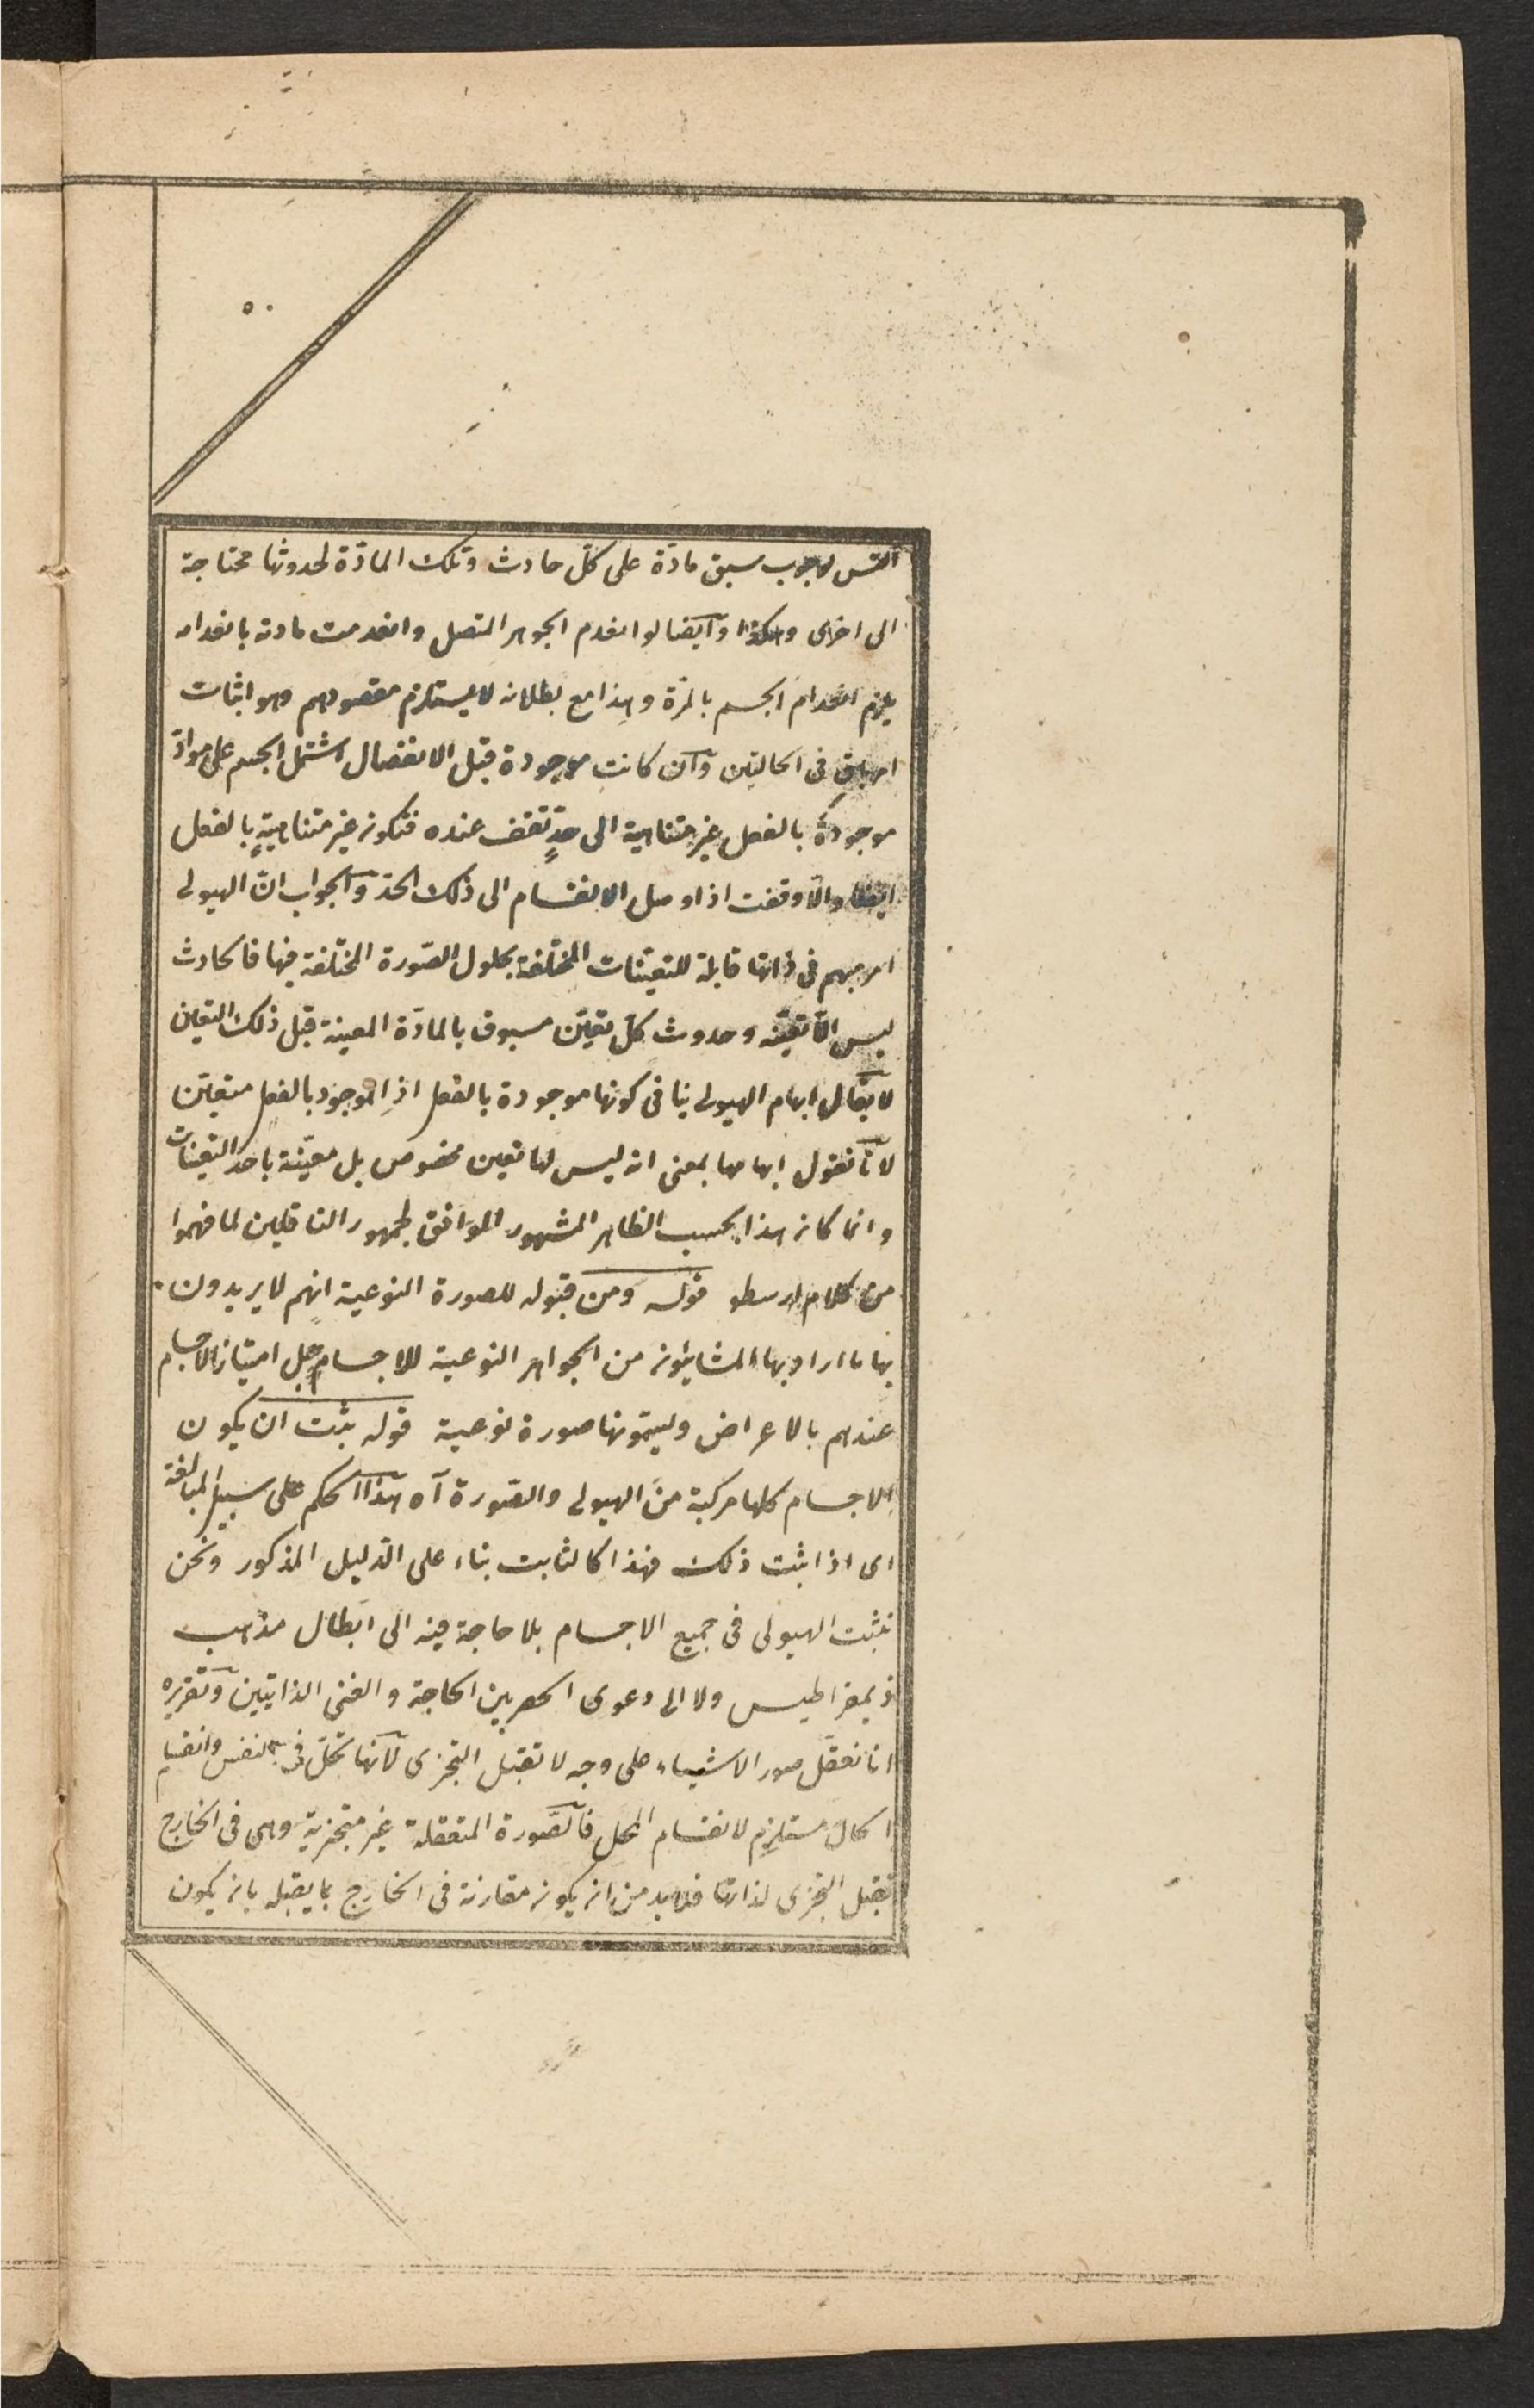 ٥٠
التس لوجوب سبق مادّة على كلّ حادث وتلك المادّة لحدوثها محتاجة
الى اخرى وهكذا وايضا لو انعدم الجوهر المتصل وانعدمت مادته بانعدامه
يلزم انعدام الجسم بالمرّة وهذا مع بطلانه لا يستلزم مقصودهم وهو اثبات
امر باق فى الحالتين وان كانت موجودة قبل الانفصال اشتمل الجسم على موادّ
موجودة بالفعل غير متناهية الى حدٍّ تقف عنده فتكون غير متناهيةٍ بالفعل
ايضا والّا وقفت اذا وصل الانقسام الى ذلك الحدّ والجواب انّ الهيولى
امر مبهم فى ذاتها قابلة للتعيّنات المختلفة بحلول الصّورة المختلفة فيها فالحادث
ليس الّا تعيّنه وحدوث كلّ تعيّن مسبوق بالمادّة المعينة قبل ذلك التعين
لا يقال ابهام الهيولى ينافى كونها موجودة بالفعل اذ الموجود بالفعل متعيّن
لانّا نقول ابهامها بمعنى انه ليس لها تعين مخصوص بل معيّنة باحد التعينات
وانما كان هذا بحسب الظاهر المشهور الموافق لجمهور الناقلين لما فهموا
من كلام ارسطو قوله ومن قبوله للصورة النوعية انهم لا يريدون
بها ما اراد بها المشائيون من الجواهر النوعية للاجسام بل امتياز الاجسام
عندهم بالاعراض ويسمّونها صورة نوعية قوله يثبت ان يكون
الاجسام كلها مركبة من الهيولى والصّورة آه هذا الحكم على سبيل المبالغة
اى اذا ثبت ذلك فهذا كالثابت بناء على الدّليل المذكور ونحن
نثبت الهيولى فى جميع الاجسام بلا حاجة فيه الى ابطال مذهب
ذيمقراطيس ولا الى دعوى الحصر بين الحاجة والغنى الذاتيين وتقريره
انا نعقّل صور الاشياء على وجه لا تقبل التجزى لانّها تحلّ فى النفس وانقسام
الحال مستلزم لانقسام المحل فالصّورة المتعقلة غير متجزية وهى فى الخارج
تقبل التجزى لذاتها فلا بد من ان يكون مقارنة فى الخارج بما يقبله بان يكون